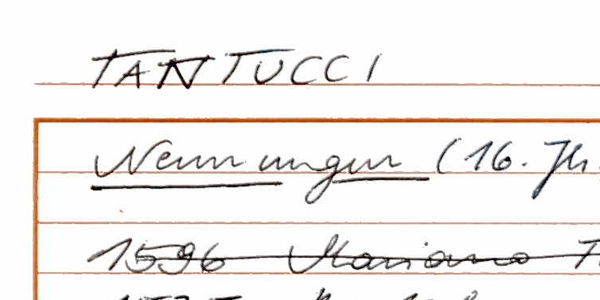 TANTUCCI
Nennungen (16. Jh.
1596 Mariano